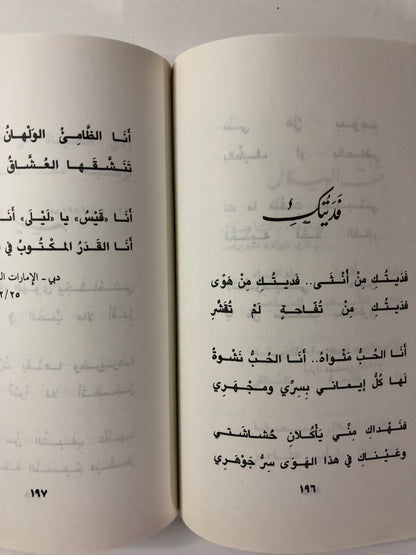 فَدَيتُكِ
فَدَيْتُكِ مِنْ أُنْثَى.. فديتُكِ مِنْ هَوًى
فَدَيْتِكِ مِنْ تُفَاحةٍ لَمْ تُقشَّرِ
أَنَا الحُبُّ مَثْواهُ.. أَنَا الحُبُّ نَشْوةٌ
لَهَا كُلُّ إيماني بِسِرِّي ومجْهَرِي
فنَهْداكِ مِنِّي يَأْكُلانِ حُشاشتي
وعَيْناكِ في هذا الهَوَى سِرُّ جَوْهَرِي
١٩٦
أَنَا الظَّامِئُ الوَلْهانُ
تَنَشَّقَها العُشَّاقُ
أَنَا «قَيْسُ» يا «لَيْلَى» أَنَا
أَنَا القَدَرُ المكْتُوبُ في
دبي - الإمارات
٢/٢٥
١٩٧